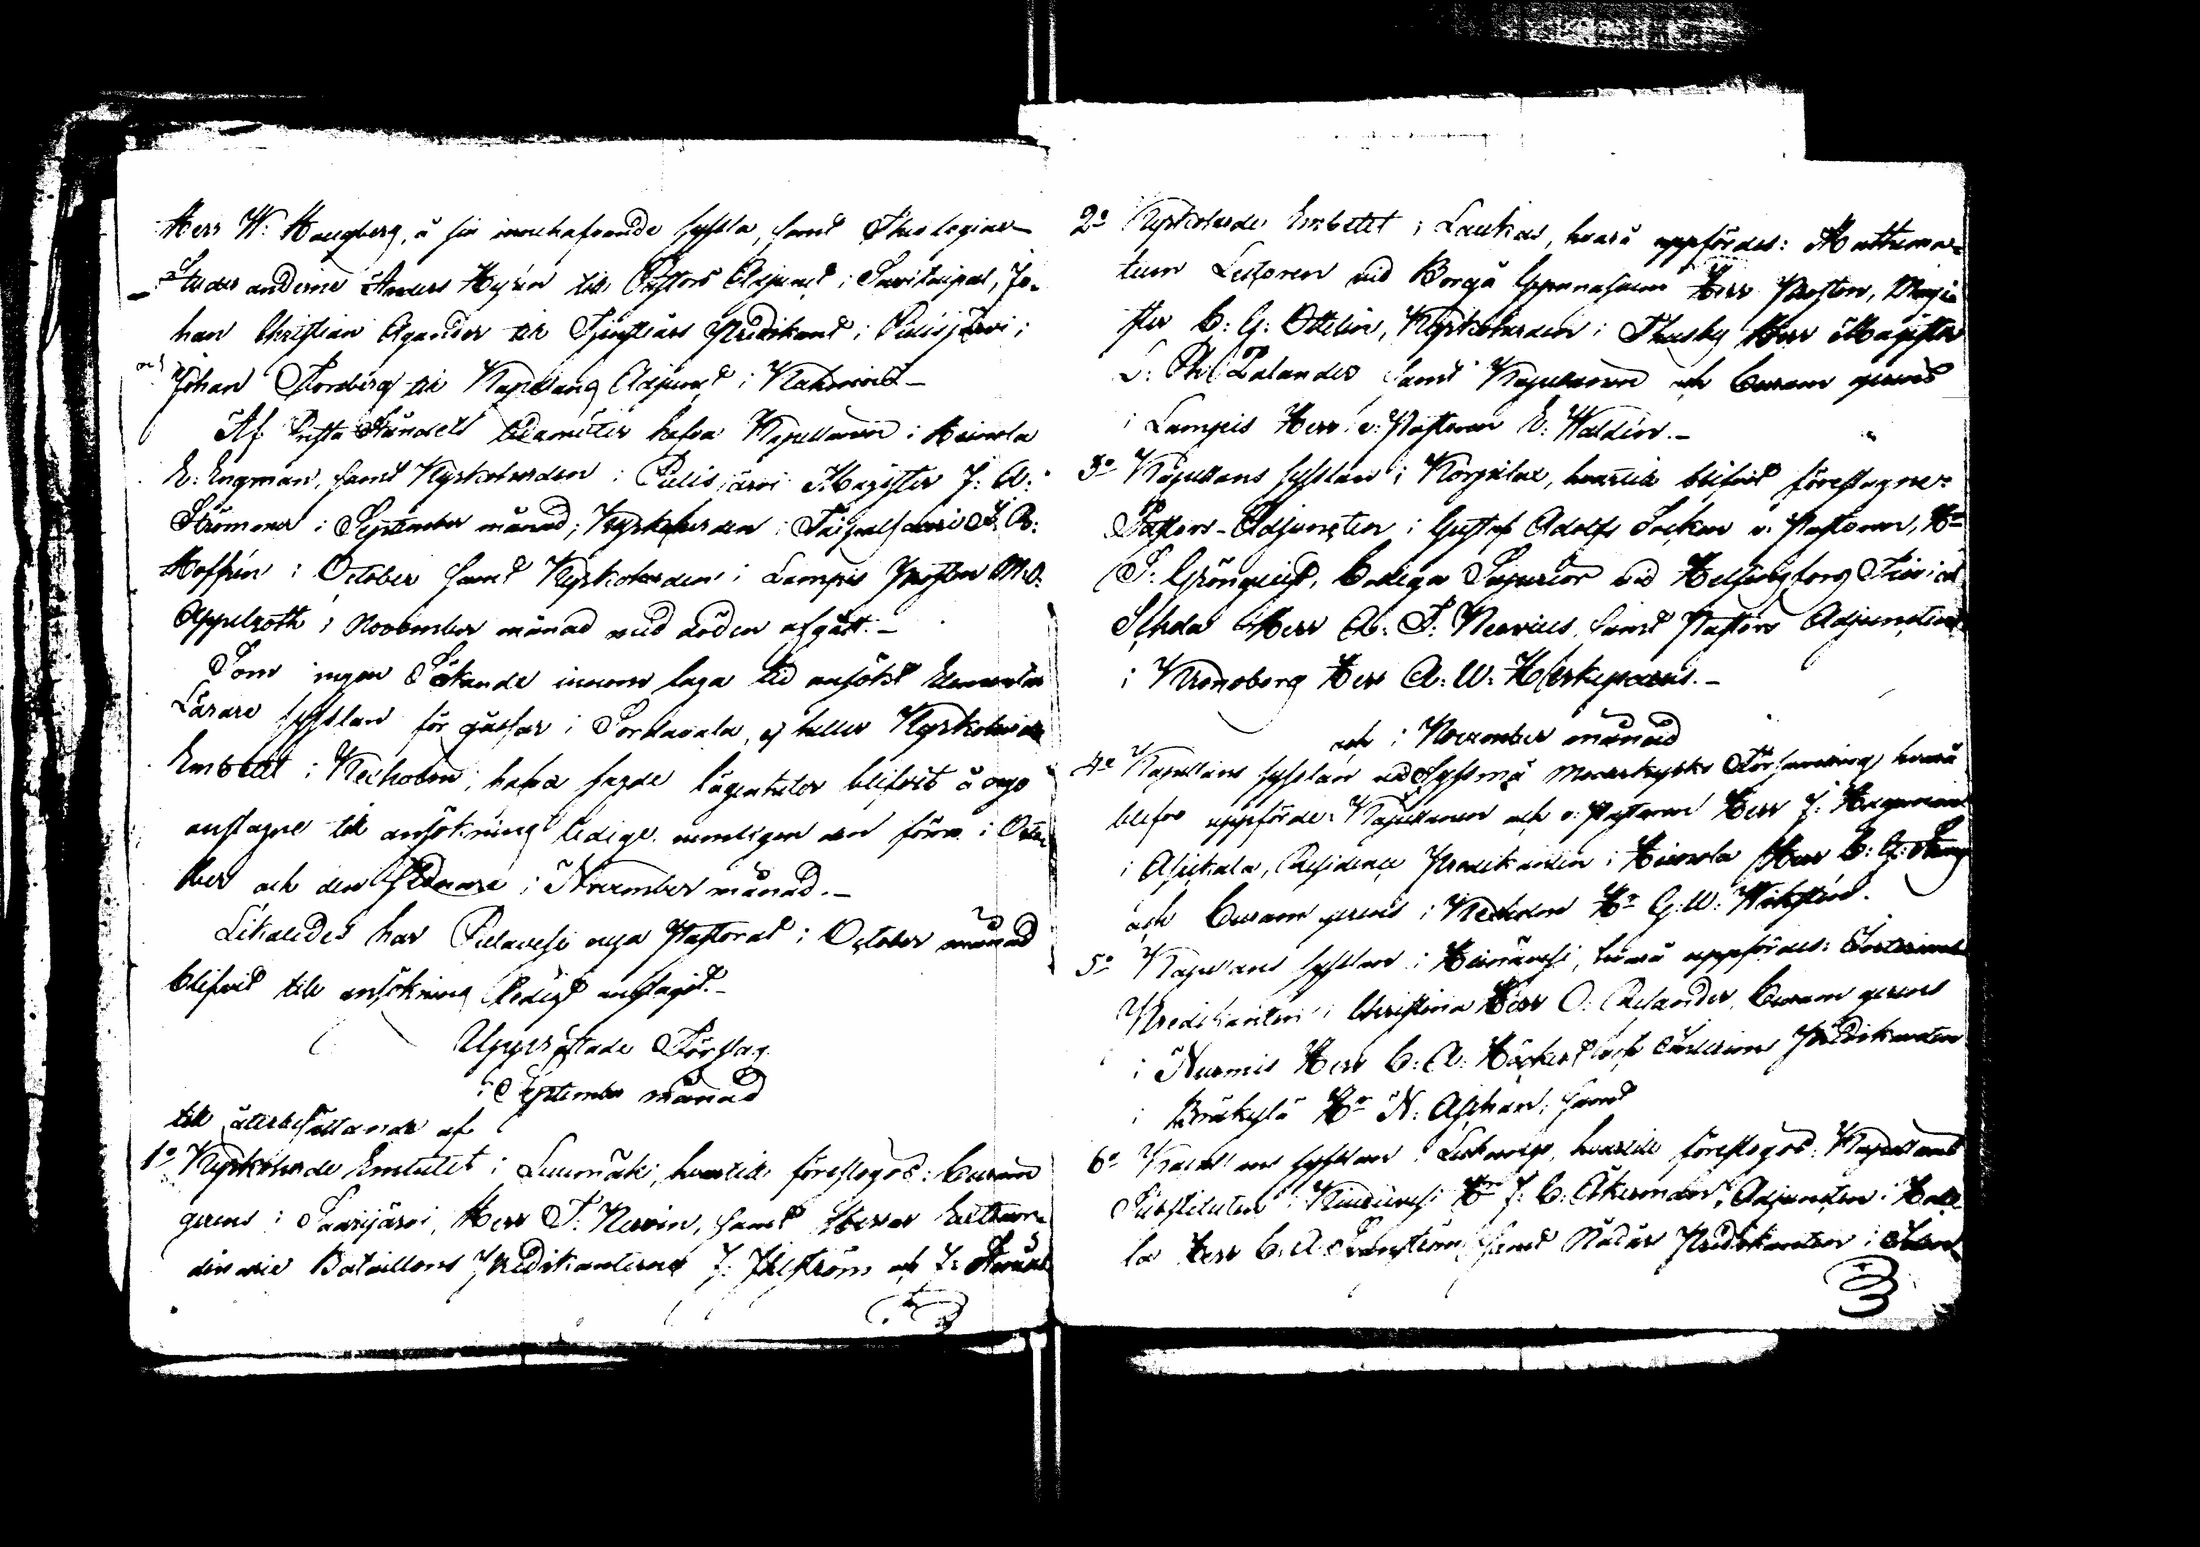 Herr W. Haugberg, å sin innehafvande syssla, samt Theologiæ
Studeranderne Anders Hysén till Pastors Adjunct i Savitaipal, Jo-
han Christian Agander till Tjenstgörs Predikant i Pielisjärvi;
och Johan Nordberg till Kapellans Adjunct i
Af Presta Ståndets Ledamöter hafva Kapellanen i Heinola
E. Engman, samt Kyrkoherden i Pielisjärvi Magister J. A.
Strömmer i September månad; Kyrkoherden i Taipalsaari
Hoffrén i October samt Kyrkoherden i Lampis Prosten
Appelroth i November månad med döden afgått.
Som ingen Sökande innom laga tid ansökt Elementar
Lärare sysslan för gåssar i Sordavala, ej heller Kyrkoherde
Embetet i Kexholm, hafva sagde lägenheter blifvit å nyo
anslagne till ansökning ledige, nemligen den förra i Octo-
ber och den sednare i November månad.
Likaledes har Pielavesi nya Pastorat i October månad
blifvit till ansökning ledigt anslagit.
Upprättade Förslag
i September månad
till återbesättande af
1o Kyrkoherde Embetet i Luumäki, hvartill föreslogos: Curam
gerens i Saarijärvi, Herr Nervin, samt Herrar Extraor-
dinarie Bataillons Predikanterne J. Ahlström och J.
2o Kyrkoherde Embetet i Laukas, hvarå uppfördes: Mathema-
tum Lectoren vid Borgå Gymnasium Herr Prosten, Magi-
ster C. G. Ottelin, Kyrkoherden i Thusby Herr Magister
Palander samt Kapellanen och Curam gerens
i Lampis Herr v. Pastoren E. Waldén.
3o Kapellans sysslan i Korpilax, hvartill blifvit föreslagne:
Pastors-Adjuncten i Gustaf Adolfs Socken v. Pastoren, Hr
S. Grönqvist, Collega Superior vid Helsingfors Trivial
Schola Herr A. T. Nervius, samt Pastors Adjuncten
i Kronoborg Herr A. W.
och i November månad
4o Kapellans sysslan vid Sysmä Moderkyrko Församling hvarå
blefvo uppförde: Kapellanen och v. Pastoren Herr J. Hagman
i Asikkala, Residence Predikanten i Heinola Herr C. G.
och Curam gerens i Kexholm Hr G. W.
5o Kapellans sysslan i Heinävesi, hvarå uppfördes:
Predikanten i Christina Herr O. Relander, Curam gerens
i Nurmis Herr C. A. Höckert och Predikanten
i Bräkylä Hr N. Aschan; samt
6o Kapellans sysslan i hvartill föreslogos: Kapellans
Substituten i Kiuruvesi Hr J. C. Åkerman, Adjuncten i Hollo-
la Herr C. A. samt Nådår Predikanten i